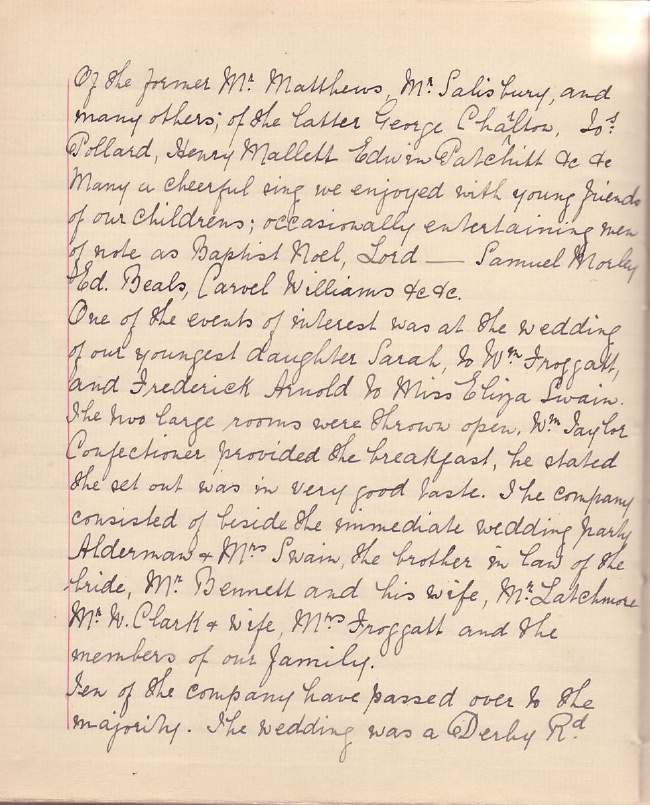 Of the former Mr. Matthews, Mr. Salisbury, and
many others; of the latter George Charlton, Jos:
Pollard, Henry Mallett Edwin Patchitt &c &c
Many a cheerful sing we enjoyed with young friends
of our childrens; occasionally entertaining men
of note as Baptist Noel, Lord — Samuel Morley
Ed. Beals, Carvel Williams &c &c.
One of the events of interest was at the wedding
of our youngest daughter Sarah, to Wm Froggatt,
and Frederick Arnold to Miss Eliza Swain.
The two large rooms were thrown open, Wm Taylor
Confectioner provided the breakfast, he stated
the set out was in very good taste. The company
consisted of beside the immediate wedding party
Alderman & Mrs Swain, the brother in law of the
bride, Mr. Bennett and his wife, Mr. Latchmore
Mr. W. Clark & wife, Mrs Froggatt and the
members of our family.
Ten of the company have passed over to the
majority. The wedding was a Derby Rd